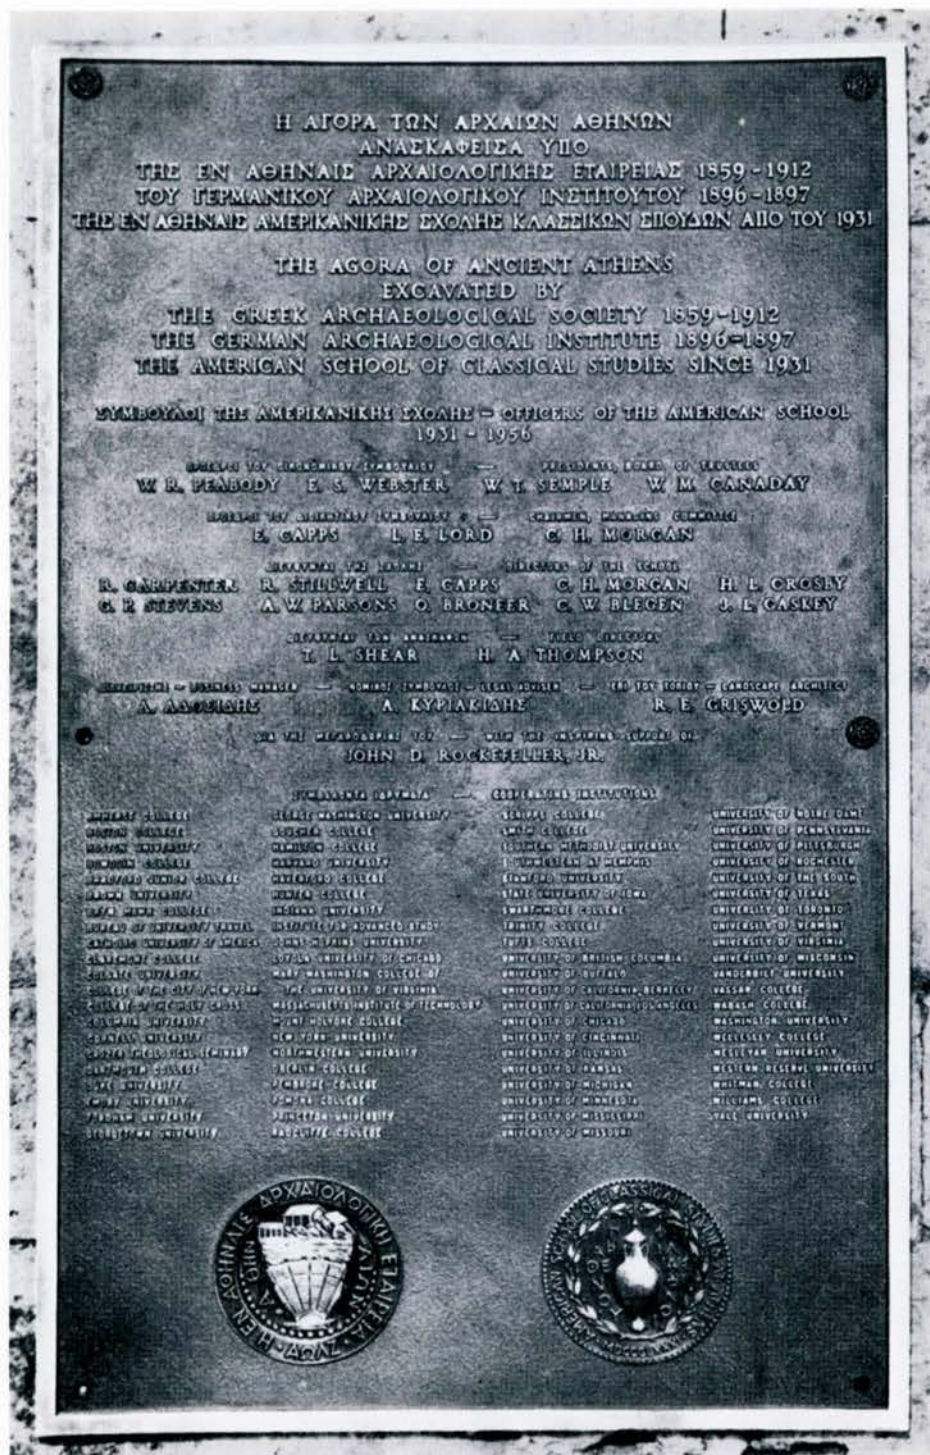 Η ΑΓΟΡΑ ΤΩΝ ΑΡΧΑΙΩΝ ΑΘΗΝΩΝ
ΑΝΑΣΚΑΦΕΙΣΑ ΥΠΟ
ΤΗΣ ΕΝ ΑΘΗΝΑΙΣ ΑΡΧΑΙΟΛΟΓΙΚΗΣ ΕΤΑΙΡΕΙΑΣ 1859-1912
ΤΟΥ ΓΕΡΜΑΝΙΚΟΥ ΑΡΧΑΙΟΛΟΓΙΚΟΥ ΙΝΣΤΙΤΟΥΤΟΥ 1896-1897
ΤΗΣ ΕΝ ΑΘΗΝΑΙΣ ΑΜΕΡΙΚΑΝΙΚΗΣ ΣΧΟΛΗΣ ΚΛΑΣΣΙΚΩΝ ΣΠΟΥΔΩΝ ΑΠΟ ΤΟΥ 1931
THE AGORA OF ANCIENT ATHENS
EXCAVATED BY
THE GREEK ARCHAEOLOGICAL SOCIETY 1859-1912
THE GERMAN ARCHAEOLOGICAL INSTITUTE 1896-1897
THE AMERICAN SCHOOL OF CLASSICAL STUDIES SINCE 1931
ΣΥΜΒΟΥΛΟΙ ΤΗΣ ΑΜΕΡΙΚΑΝΙΚΗΣ ΣΧΟΛΗΣ - OFFICERS OF THE AMERICAN SCHOOL
1931 - 1956
ΠΡΟΕΔΡΟΙ ΤΟΥ ΟΙΚΟΝΟΜΙΚΟΥ ΣΥΜΒΟΥΛΙΟΥ — PRESIDENTS, BOARD OF TRUSTEES
W. R. PEABODY E. S. WEBSTER W. T. SEMPLE W. M. CANADAY
ΠΡΟΕΔΡΟΙ ΤΟΥ ΔΙΟΙΚΗΤΙΚΟΥ ΣΥΜΒΟΥΛΙΟΥ — CHAIRMEN, MANAGING COMMITTEE
E. CAPPS L. E. LORD C. H. MORGAN
ΔΙΕΥΘΥΝΤΑΙ ΤΗΣ ΣΧΟΛΗΣ — DIRECTORS OF THE SCHOOL
R. CARPENTER R. STILLWELL E. CAPPS C. H. MORGAN H. L. CROSBY
G. P. STEVENS A. W. PARSONS O. BRONEER C. W. BLEGEN J. L. CASKEY
ΔΙΕΥΘΥΝΤΑΙ ΤΩΝ ΑΝΑΣΚΑΦΩΝ — FIELD DIRECTORS
T. L. SHEAR H. A. THOMPSON
ΔΙΑΧΕΙΡΙΣΤΗΣ - BUSINESS MANAGER — ΝΟΜΙΚΟΣ ΣΥΜΒΟΥΛΟΣ - LEGAL ADVISER — ΕΠΙ ΤΟΥ ΤΟΠΙΟΥ - LANDSCAPE ARCHITECT
Α. ΑΔΟΣΙΔΗΣ Α. ΚΥΡΙΑΚΙΔΗΣ R. E. GRISWOLD
ΔΙΑ ΤΗΣ ΜΕΓΑΛΟΔΩΡΙΑΣ ΤΟΥ — WITH THE INSPIRING SUPPORT OF
JOHN D. ROCKEFELLER, JR.
ΣΥΜΒΑΛΛΟΝΤΑ ΙΔΡΥΜΑΤΑ — COOPERATING INSTITUTIONS
AMHERST COLLEGE
BOSTON COLLEGE
BOSTON UNIVERSITY
BOWDOIN COLLEGE
BRADFORD JUNIOR COLLEGE
BROWN UNIVERSITY
BRYN MAWR COLLEGE
BUREAU OF UNIVERSITY TRAVEL
CATHOLIC UNIVERSITY OF AMERICA
CLAREMONT COLLEGE
COLGATE UNIVERSITY
COLLEGE OF THE CITY OF NEW YORK
COLLEGE OF THE HOLY CROSS
COLUMBIA UNIVERSITY
CORNELL UNIVERSITY
CROZER THEOLOGICAL SEMINARY
DARTMOUTH COLLEGE
DUKE UNIVERSITY
EMORY UNIVERSITY
FORDHAM UNIVERSITY
GEORGETOWN UNIVERSITY
GEORGE WASHINGTON UNIVERSITY
GOUCHER COLLEGE
HAMILTON COLLEGE
HARVARD UNIVERSITY
HAVERFORD COLLEGE
HUNTER COLLEGE
INDIANA UNIVERSITY
INSTITUTE FOR ADVANCED STUDY
JOHNS HOPKINS UNIVERSITY
LOYOLA UNIVERSITY OF CHICAGO
MARY WASHINGTON COLLEGE OF
THE UNIVERSITY OF VIRGINIA
MASSACHUSETTS INSTITUTE OF TECHNOLOGY
MOUNT HOLYOKE COLLEGE
NEW YORK UNIVERSITY
NORTHWESTERN UNIVERSITY
OBERLIN COLLEGE
PEMBROKE COLLEGE
POMONA COLLEGE
PRINCETON UNIVERSITY
RADCLIFFE COLLEGE
SCRIPPS COLLEGE
SMITH COLLEGE
SOUTHERN METHODIST UNIVERSITY
SOUTHWESTERN AT MEMPHIS
STANFORD UNIVERSITY
STATE UNIVERSITY OF IOWA
SWARTHMORE COLLEGE
TRINITY COLLEGE
TUFTS COLLEGE
UNIVERSITY OF BRITISH COLUMBIA
UNIVERSITY OF BUFFALO
UNIVERSITY OF CALIFORNIA, BERKELEY
UNIVERSITY OF CALIFORNIA, LOS ANGELES
UNIVERSITY OF CHICAGO
UNIVERSITY OF CINCINNATI
UNIVERSITY OF ILLINOIS
UNIVERSITY OF KANSAS
UNIVERSITY OF MICHIGAN
UNIVERSITY OF MINNESOTA
UNIVERSITY OF MISSISSIPPI
UNIVERSITY OF MISSOURI
UNIVERSITY OF NOTRE DAME
UNIVERSITY OF PENNSYLVANIA
UNIVERSITY OF PITTSBURGH
UNIVERSITY OF ROCHESTER
UNIVERSITY OF THE SOUTH
UNIVERSITY OF TEXAS
UNIVERSITY OF TORONTO
UNIVERSITY OF VERMONT
UNIVERSITY OF VIRGINIA
UNIVERSITY OF WISCONSIN
VANDERBILT UNIVERSITY
VASSAR COLLEGE
WABASH COLLEGE
WASHINGTON UNIVERSITY
WELLESLEY COLLEGE
WESLEYAN UNIVERSITY
WESTERN RESERVE UNIVERSITY
WHITMAN COLLEGE
WILLIAMS COLLEGE
YALE UNIVERSITY
Η ΕΝ ΑΘΗΝΑΙΣ ΑΡΧΑΙΟΛΟΓΙΚΗ ΕΤΑΙΡΕΙΑ
AMERICAN SCHOOL OF CLASSICAL STUDIES